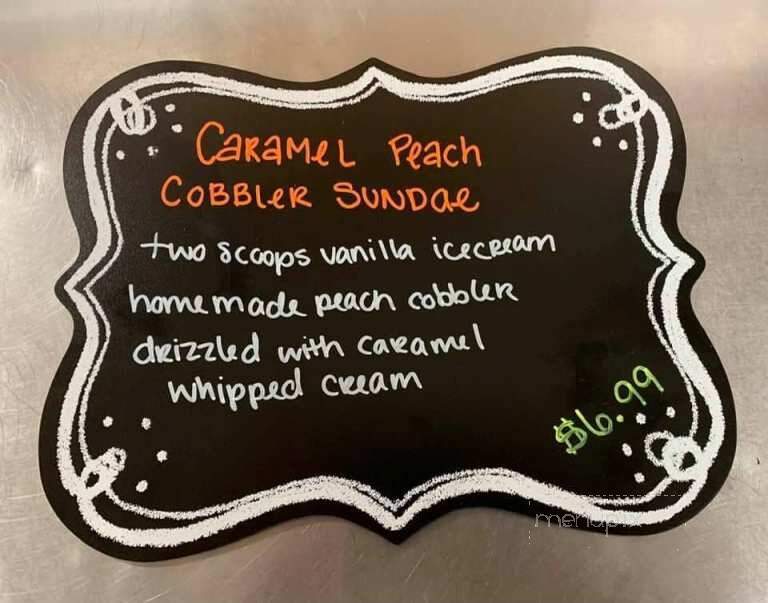 CARAMEL PEACH
COBBLER SUNDAE
two scoops vanilla icecream
homemade peach cobbler
drizzled with caramel
whipped cream
$6.99
menupix